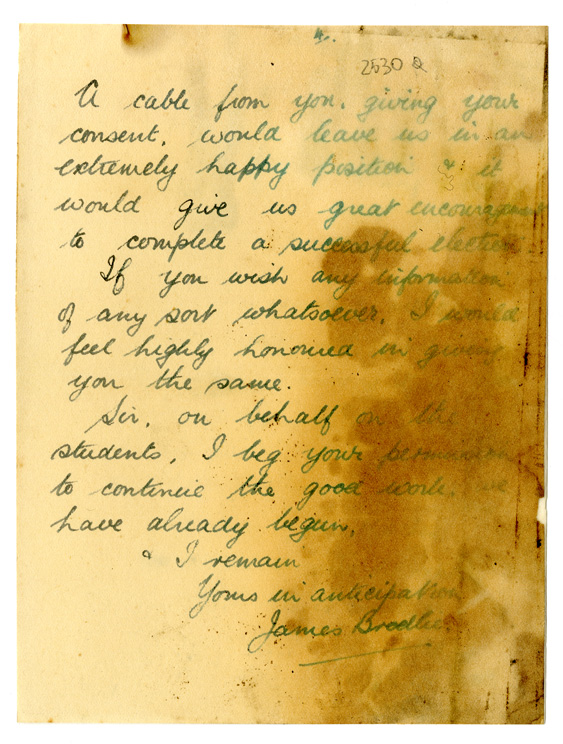 4.
2530 Q
A cable from you, giving your
consent, would leave us in an
extremely happy position & it
would give us great encouragement
to complete a successful election
If you wish any information
of any sort whatsoever, I would
feel highly honoured in giving
you the same.
Sir, on behalf on the
students, I beg your permission
to continue the good work,
have already begun,
& I remain
Yours in anticipation
James Brodlie